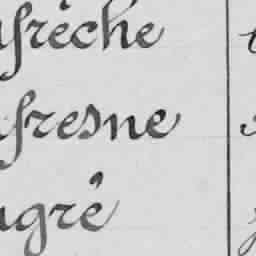 frêche
fresne
ugré